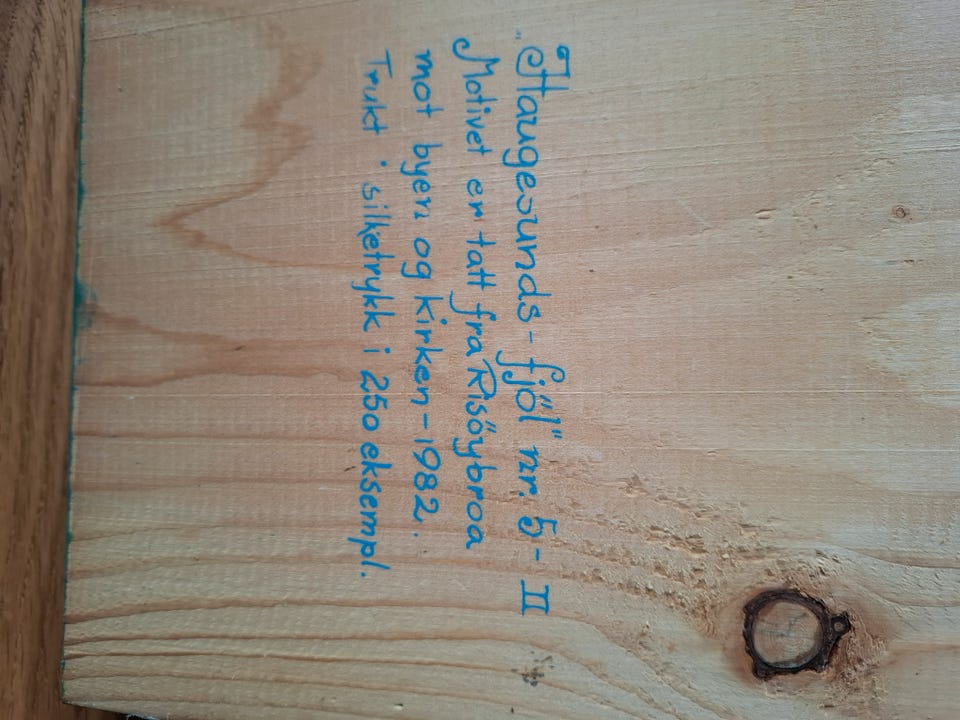 "Haugesunds-fjöl" nr. 5 - II
Motivet er tatt fra Risöybroa
mot byen og kirken - 1982.
Trukt i silketrykk i 250 eksempl.